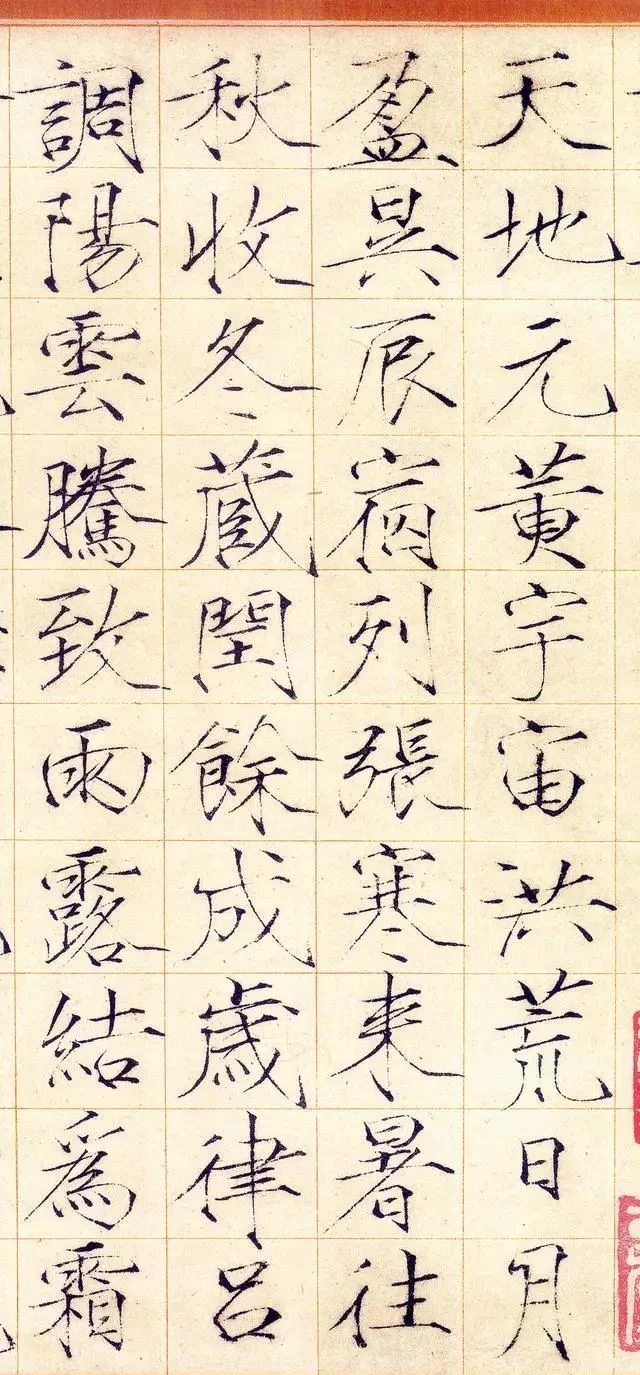 天地元黄宇宙洪荒日月
盈昃辰宿列張寒来暑往
秋收冬蔵閏餘成歳律吕
調陽雲騰致雨露結爲霜